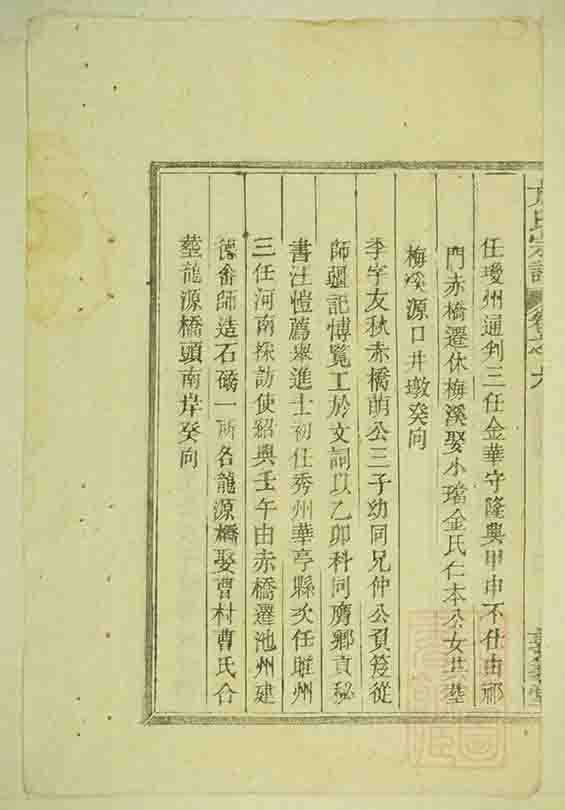 任瓊州通判三任金華守隆興甲申不仕由祁
門赤橋遷休梅溪娶小璫金氏仁本公女共塟
梅溪源口井墩癸向
季字友秋赤橋萌公三子幼同兄仲公負笈從
師彊記博覧工於文詞以乙卯科同膺鄉貢秘
書汪愷薦舉進士初仕秀州華亭縣次任睢州
三任河南採訪使紹興壬午由赤橋遷池州建
德畨師造石磡一所名龍源橋娶曹村曹氏合
塟龍源橋頭南岸癸向